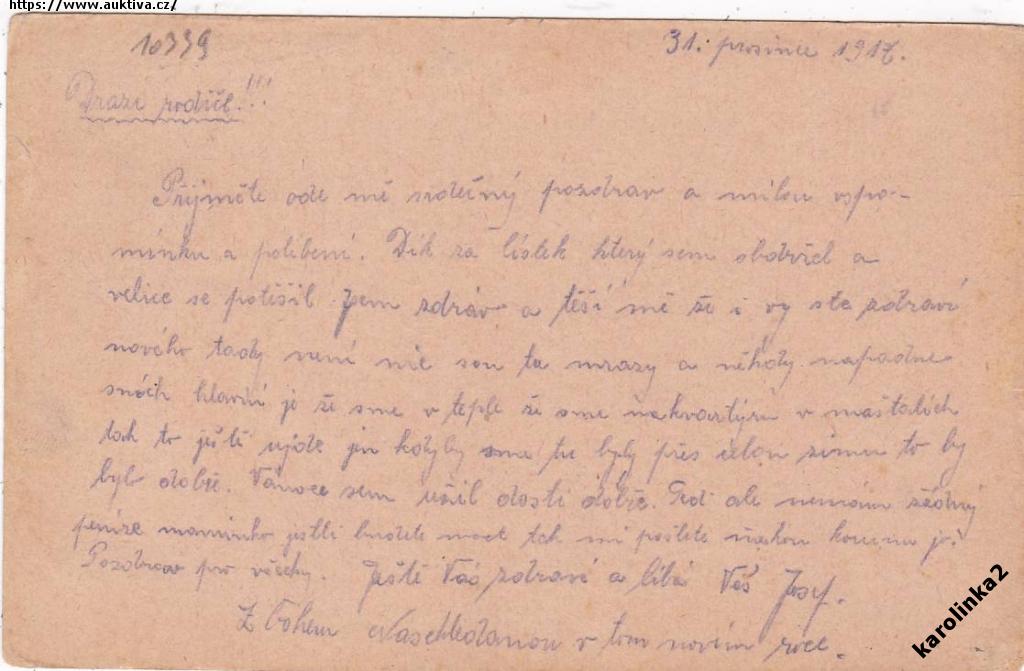 https://www.auktiva.cz/
10339
31. prosince 1917.
Drazi rodiče!!!
Přijměte ode mě srdečný pozdrav a milou vspo-
mínku a políbení. Dík za lístek který sem obdržel a
velice se potěšil Jsem zdráv a těší mě že i vy ste zdraví
nového tady není nic sou tu mrazy a někdy napadne
sníh hlavní je že sme v teple že sme na kvartýru v maštalích
tak to ještě ujde jen kdyby sme tu byly přes celou zimu to by
bylo dobře. Vánoce sem užil dosti dobře. Teď ale nemám žádný
peníze maminko jestli budete moct tak mi pošlete
Pozdrav pro všecky. Ještě Vás zdraví a líbá Váš Josef.
Z Bohem Naschledanou v tom novím roce.
karolinka2